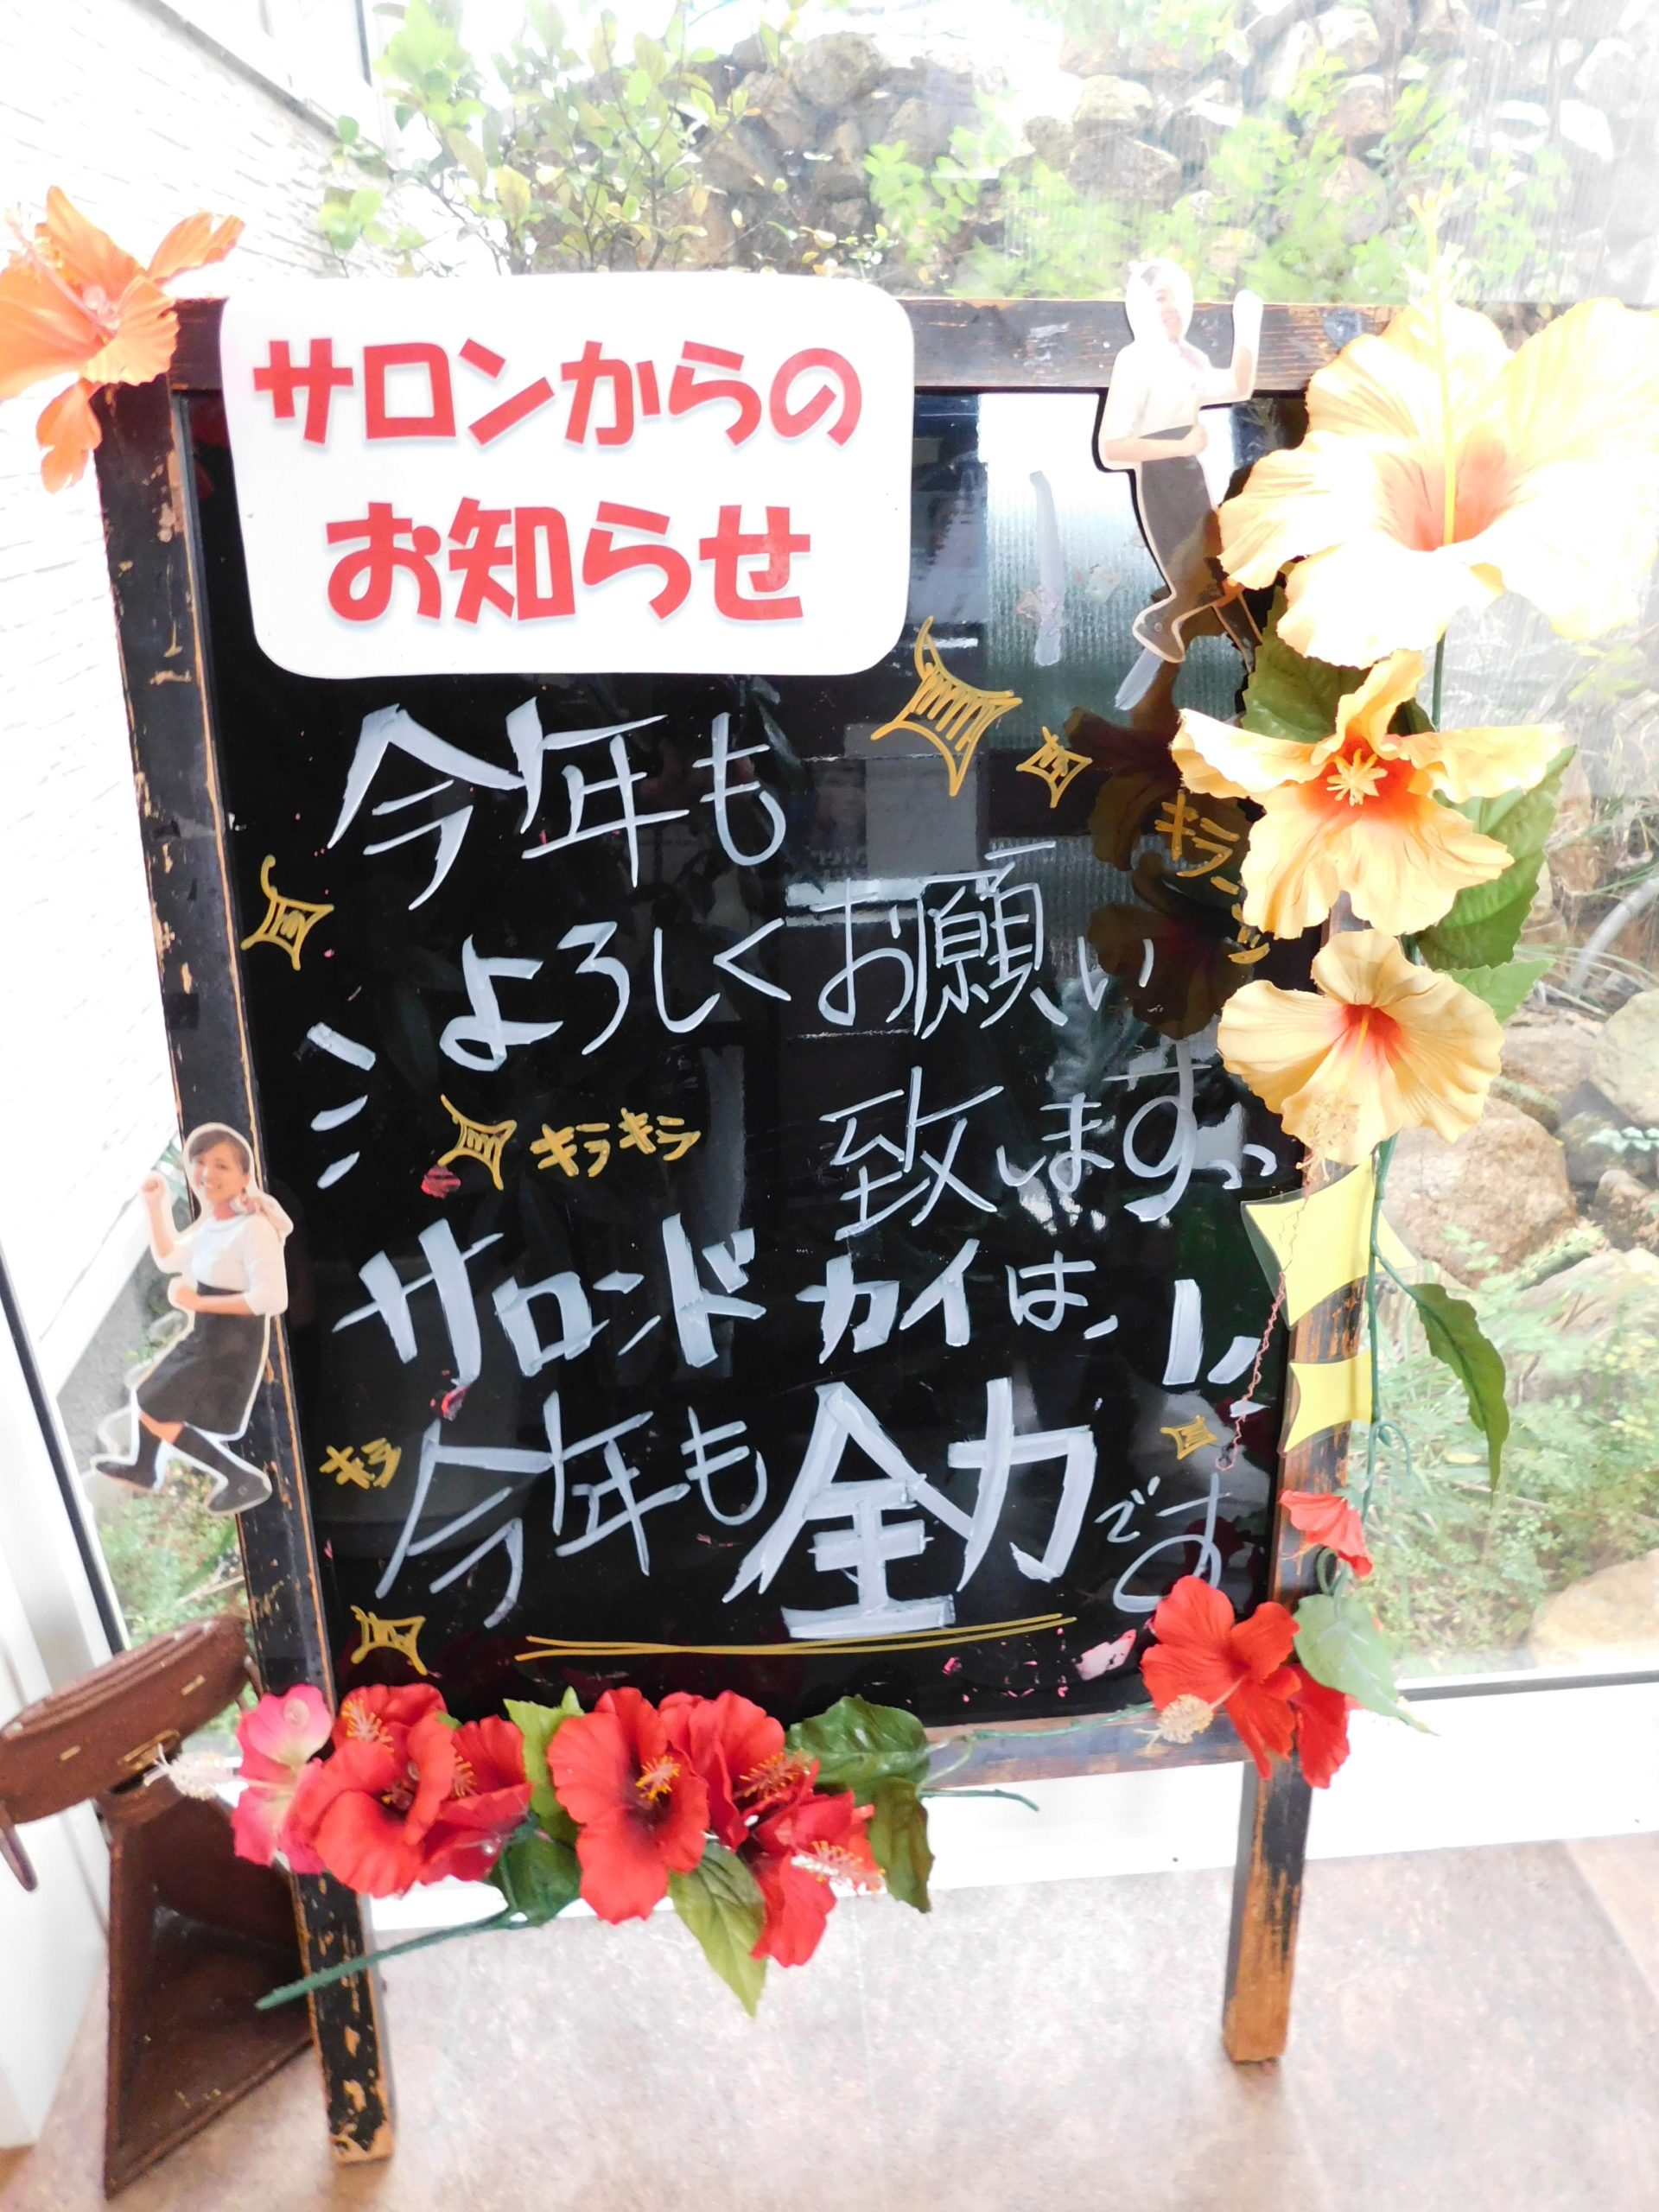 サロンからの
お知らせ
今年も
キラーッ
よろしくお願い
致します。
キラキラ
サロンド カイは、
今年も全力です
キラ